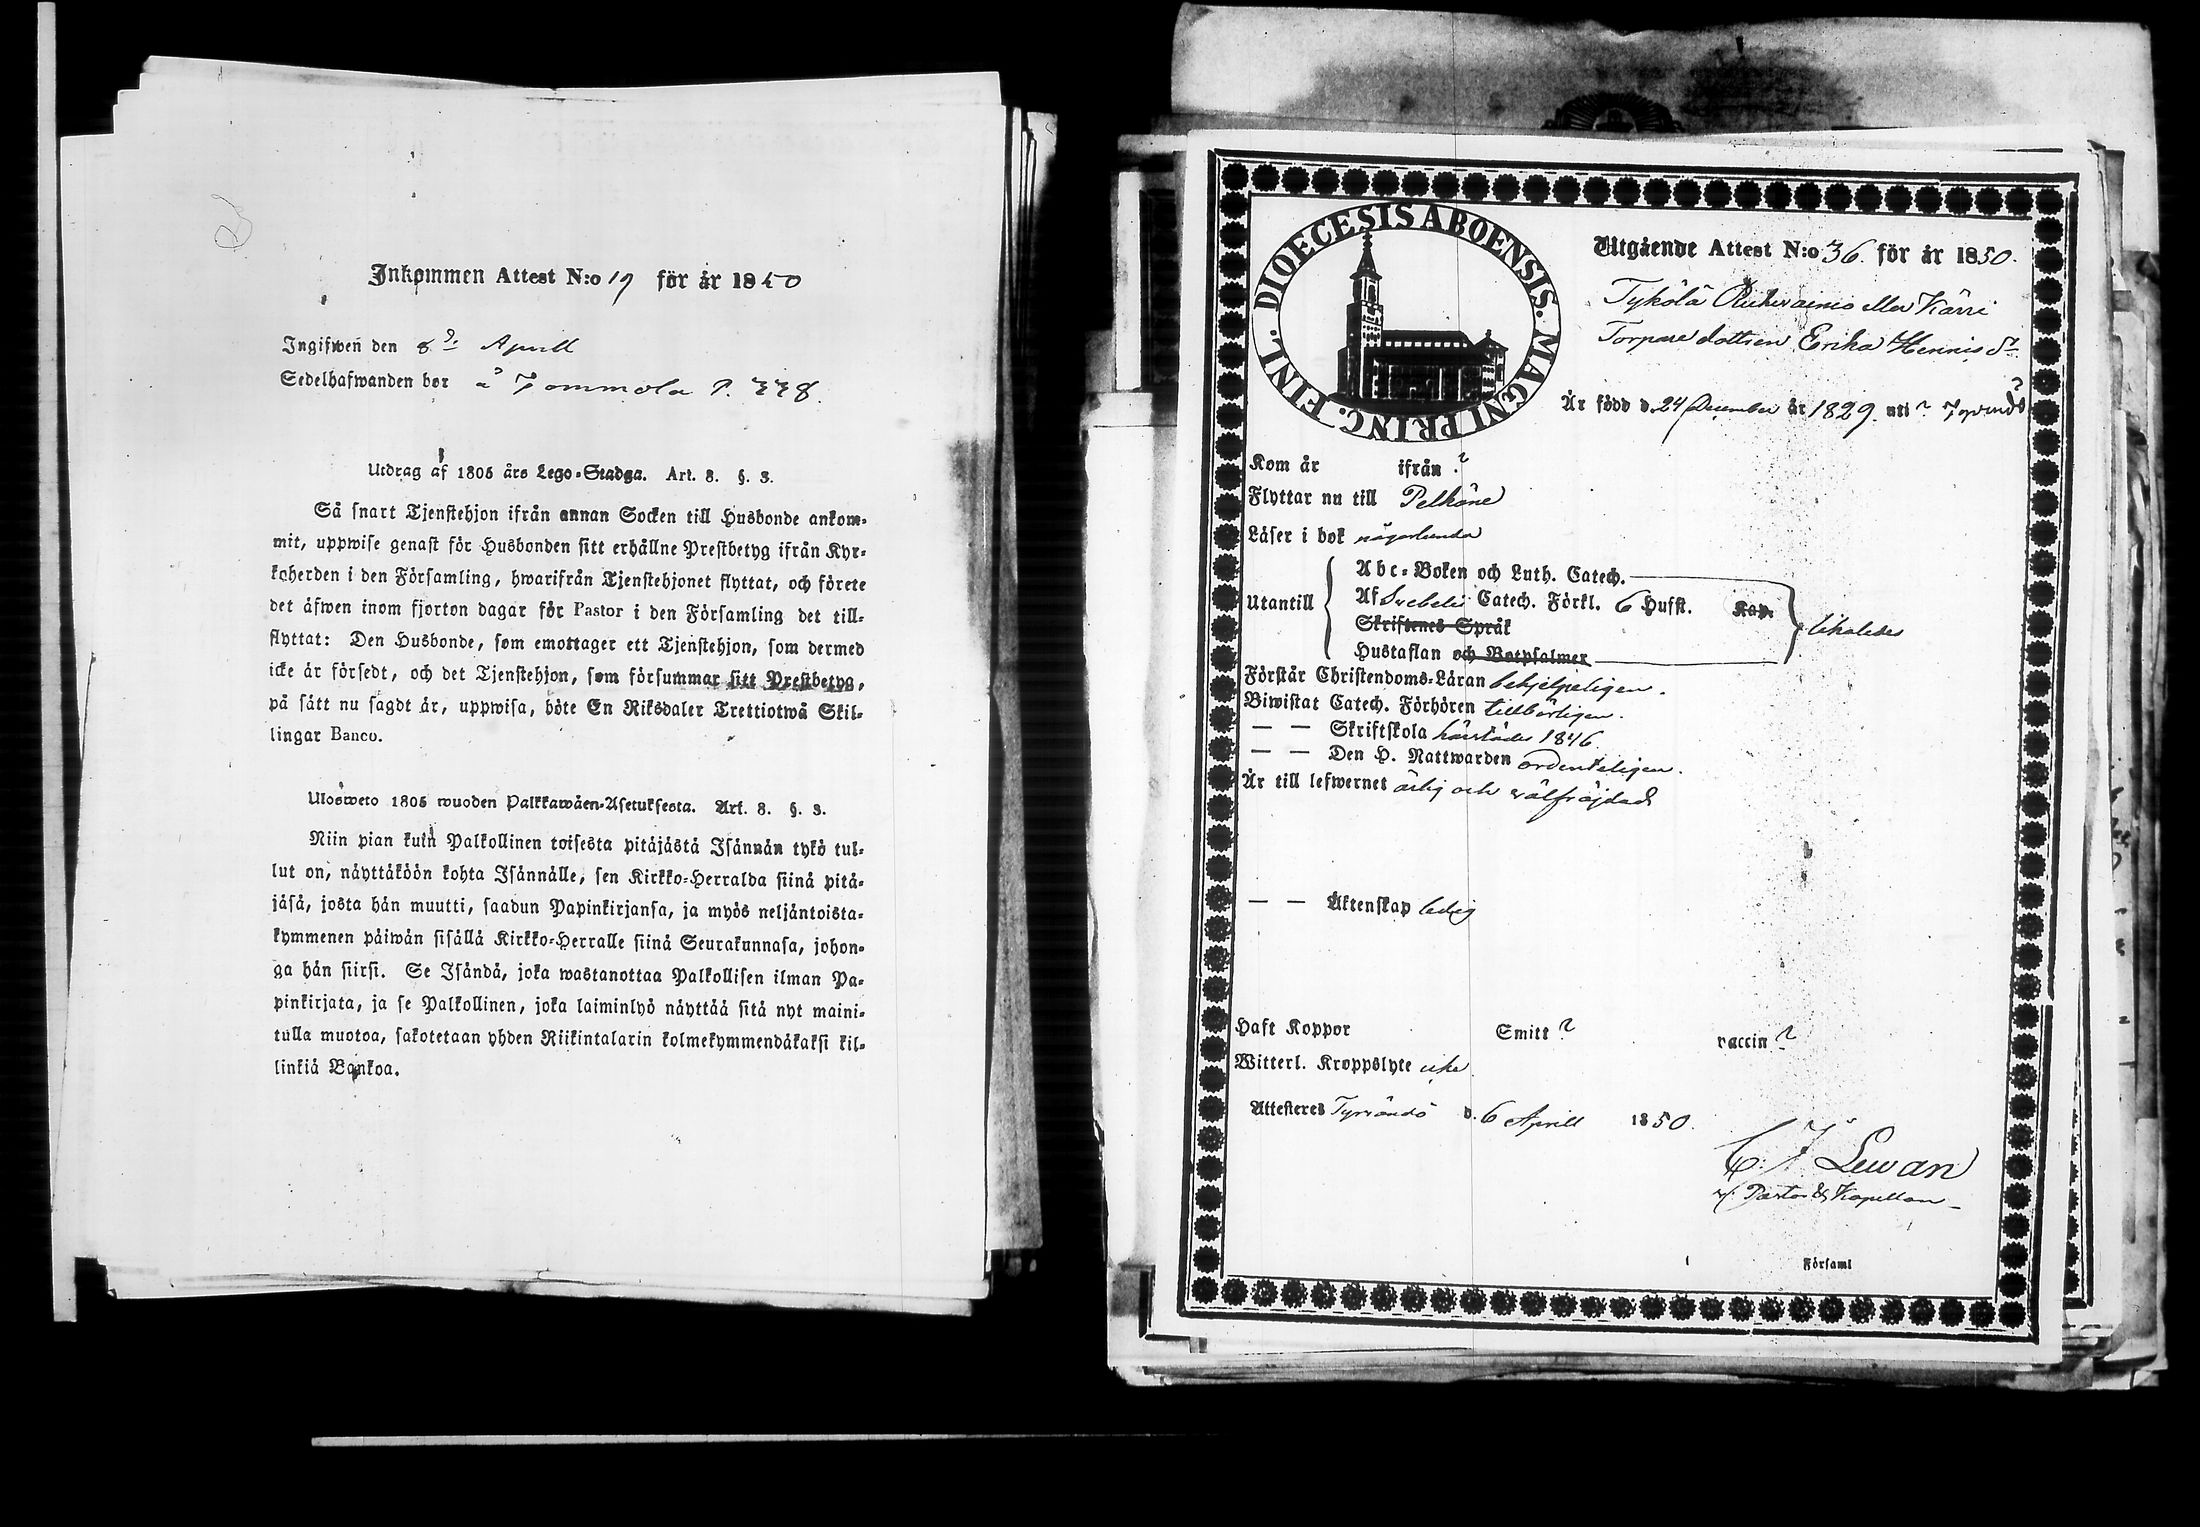 Inkommen Attest N:o 19 för år 1850
Ingifwen den 8d: Aprill
Sedelhafwanden bor å Tommola P. 338.
Utdrag af 1805 års Lego-Stadga. Art. 8. §. 3.
Så snart Tjenstehjon ifrån annan Socken till Husbonde ankom-
mit, uppwise genast för Husbonden sitt erhållne Prestbetyg ifrån Kyr-
koherden i den Församling, hwarifrån Tjenstehjonet flyttat, och förete
det äfwen inom fjorton dagar för Pastor i den Församling det till-
flyttat: Den Husbonde, som emottager ett Tjenstehjon, som dermed
icke är försedt, och det Tjenstehjon, som försummar sitt Prestbetyg,
på sätt nu sagdt är, uppwisa, böte En Riksdaler Trettiotwå Skil-
lingar Banco.
Ulosweto 1805 wuoden Palkkawäen-Asetuksesta. Art. 8. §. 3.
Niin pian kuin Palkollinen toisesta pitäjästä Isännän tykö tul-
lut on, näyttäköön kohta Isännälle, sen Kirkko-Herralda siinä pitä-
jäsä, josta hän muutti, saadun Papinkirjansa, ja myös neljäntoista-
kymmenen päiwän sisällä Kirkko-Herralle siinä Seurakunnasa, johon-
ga hän siirsi. Se Isändä, joka wastanottaa Palkollisen ilman Pa-
pinkirjata, ja se Palkollinen, joka laiminlyö näyttää sitä nyt maini-
tulla muotoa, sakotetaan yhden Riikintalarin kolmekymmendäkaksi kil-
linkiä Bankoa.
DIOECESIS ABOENSIS. MAGNI PRINC. FINL.
Utgående Attest N:o 36. för år 1850.
Tykölä eller Kärri
Torpare dottren Erika Hennis dr
Är född d. 24 December år 1829. uti ?
Kom år ifrån ?
Flyttar nu till Pelkäne
Läser i bok någorlunda
Utantill
Abc-Boken och Luth. Catech.
Af Svebelii Catech. Förkl. 6 Hufst. Kap.
Skriftenes Språk
Hustaflan och Botpsalmer
likaledes
Förstår Christendoms-Läran behjelpeligen.
Biwistat Catech. Förhören tillbörligen.
— — Skriftskola härstädes 1846.
— — Den H. Nattwarden ordenteligen.
Är till lefwernet ärlig och välfräjdad
— — Äktenskap ledig
Haft Koppor Smitt ? vaccin ?
Witterl. Kroppslyte icke
Attesteres Tyrvändö d. 6 Aprill 1850.
C. J. Lewan
v. Pastor & Kapellan
Församl